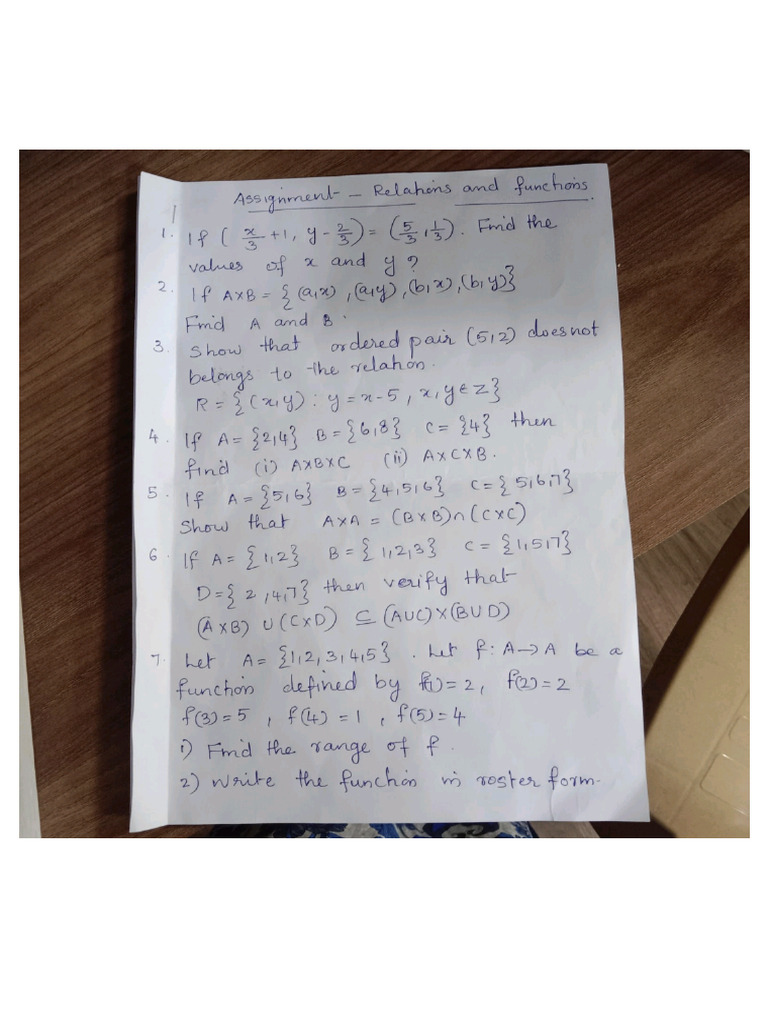 Assignment - Relations and functions.
1. If ( x/3 + 1, y - 2/3 ) = ( 5/3, 1/3 ). Find the
values of x and y ?
2. If A×B = { (a,x), (a,y), (b,x), (b,y)}
Find A and B.
3. Show that ordered pair (5,2) does not
belongs to the relation.
R = { (x,y) : y = x-5, x,y ∈ Z }
4. If A = {2,4} B = {6,8} C = {4} then
find (i) A×B×C (ii) A×C×B.
5. If A = {5,6} B = {4,5,6} C = {5,6,7}
Show that A×A = (B×B)∩(C×C)
6. If A = {1,2} B = {1,2,3} C = {1,5,7}
D = {2,4,7} then verify that
(A×B) ∪ (C×D) ⊆ (A∪C)×(B∪D)
7. Let A = {1,2,3,4,5}. Let f: A→A be a
function defined by f(1)=2, f(2)=2
f(3)=5, f(4)=1, f(5)=4
1) Find the range of f.
2) Write the function in roster form.